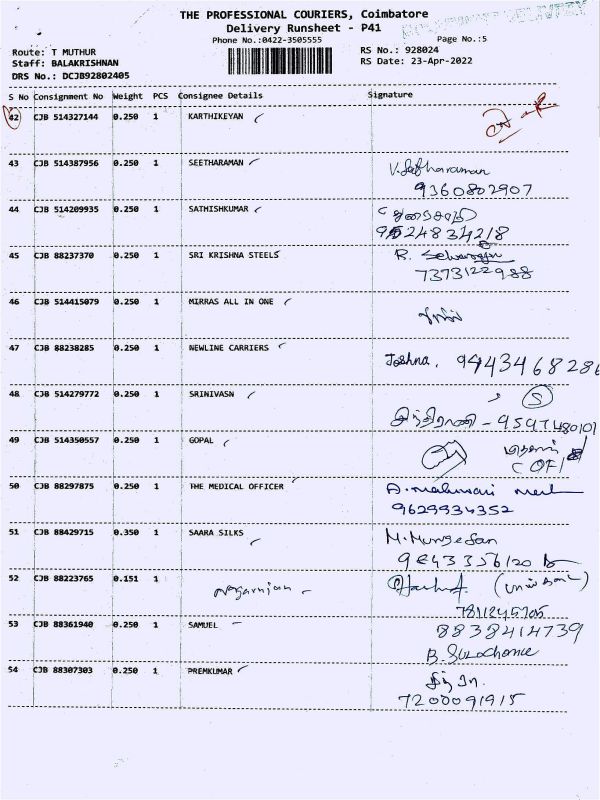 THE PROFESSIONAL COURIERS, Coimbatore
Delivery Runsheet - P41
Phone No.:0422-3505555
Page No.:5
Route: T MUTHUR
RS No.: 928024
Staff: BALAKRISHNAN
RS Date: 23-Apr-2022
DRS No.: DCJB92802405
S No Consignment No Weight PCS Consignee Details Signature
42 CJB 514327144 0.250 1 KARTHIKEYAN
43 CJB 514387956 0.250 1 SEETHARAMAN
9360802907
44 CJB 514209935 0.250 1 SATHISHKUMAR
45 CJB 88237370 0.250 1 SRI KRISHNA STEELS
7373122988
46 CJB 514415079 0.250 1 MIRRAS ALL IN ONE
47 CJB 88238285 0.250 1 NEWLINE CARRIERS
Joshna. 9443468286
48 CJB 514279772 0.250 1 SRINIVASN
49 CJB 514350557 0.250 1 GOPAL
50 CJB 88297875 0.250 1 THE MEDICAL OFFICER
9629934352
51 CJB 88429715 0.350 1 SAARA SILKS
M. Murugesan
52 CJB 88223765 0.151 1
53 CJB 88361940 0.250 1 SAMUEL
8838414739
54 CJB 88307303 0.250 1 PREMKUMAR
7200091915